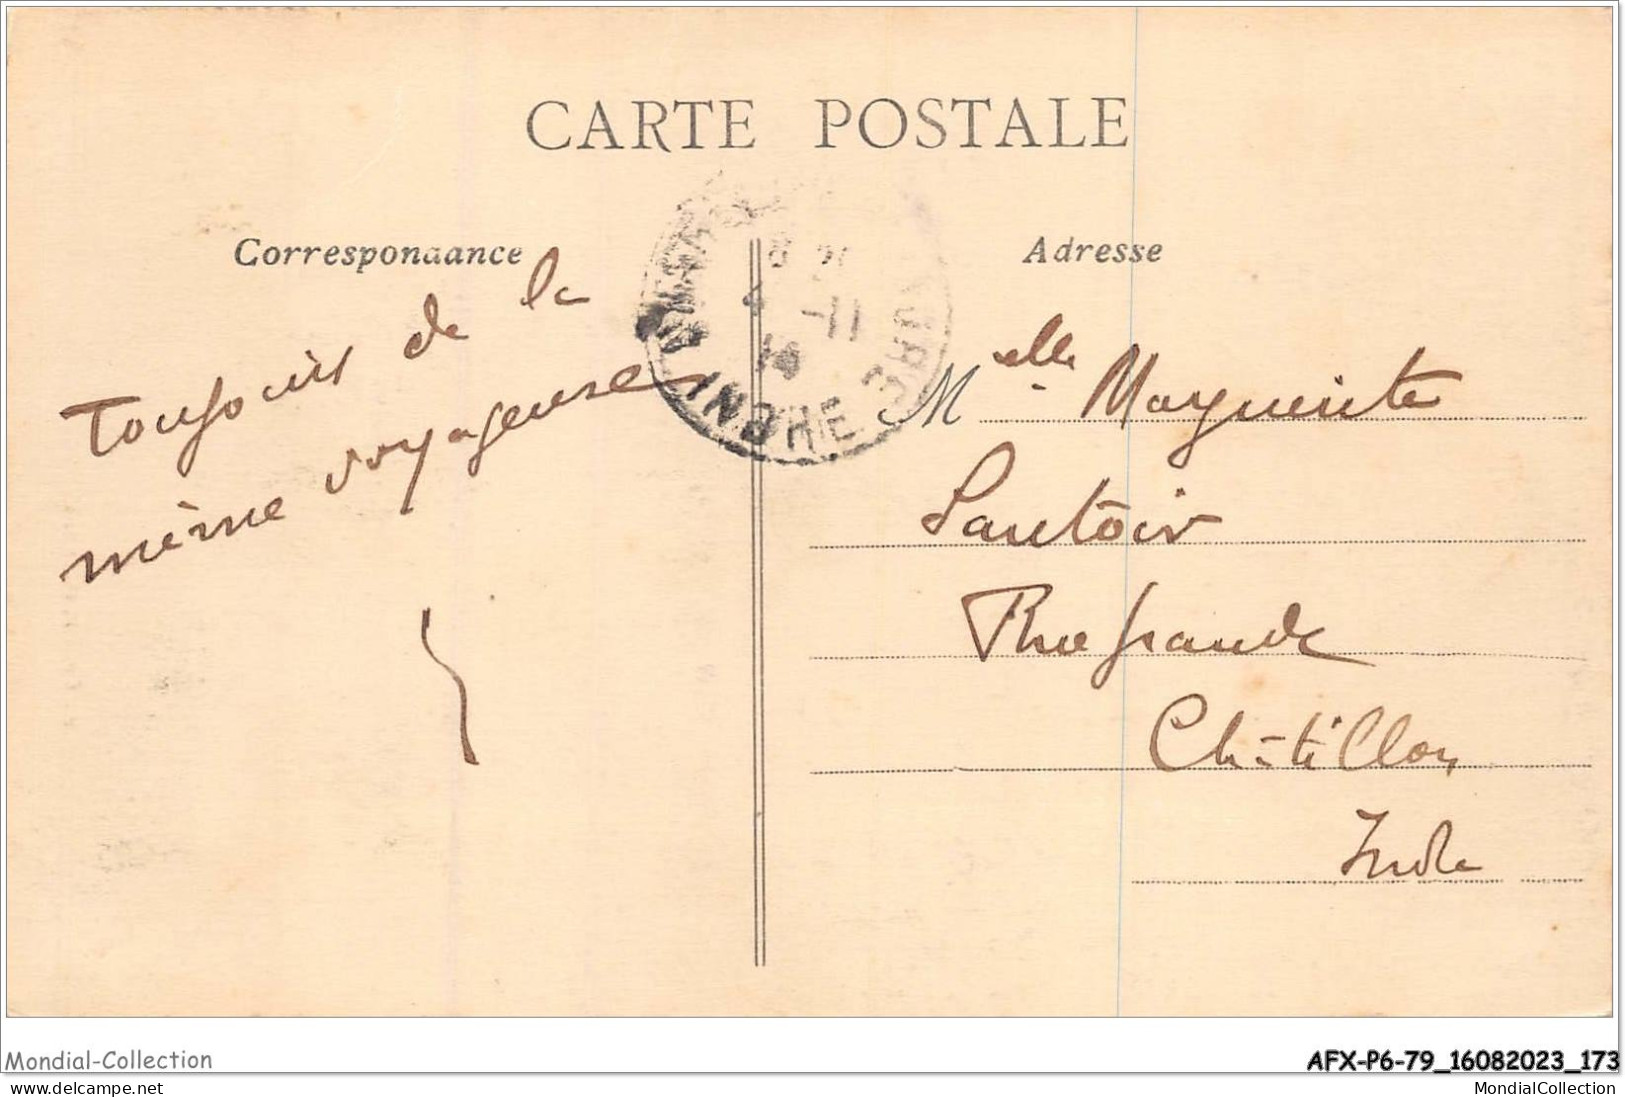 CARTE POSTALE
Correspondance
Toujours de la
même voyageuse
Adresse
Melle Marguerite
Santoir
Rue grande
Châtillon
Indre
INDRE
-11
14
Mondial-Collection
AFX-P6-79_16082023_173
www.delcampe.net
MondialCollection